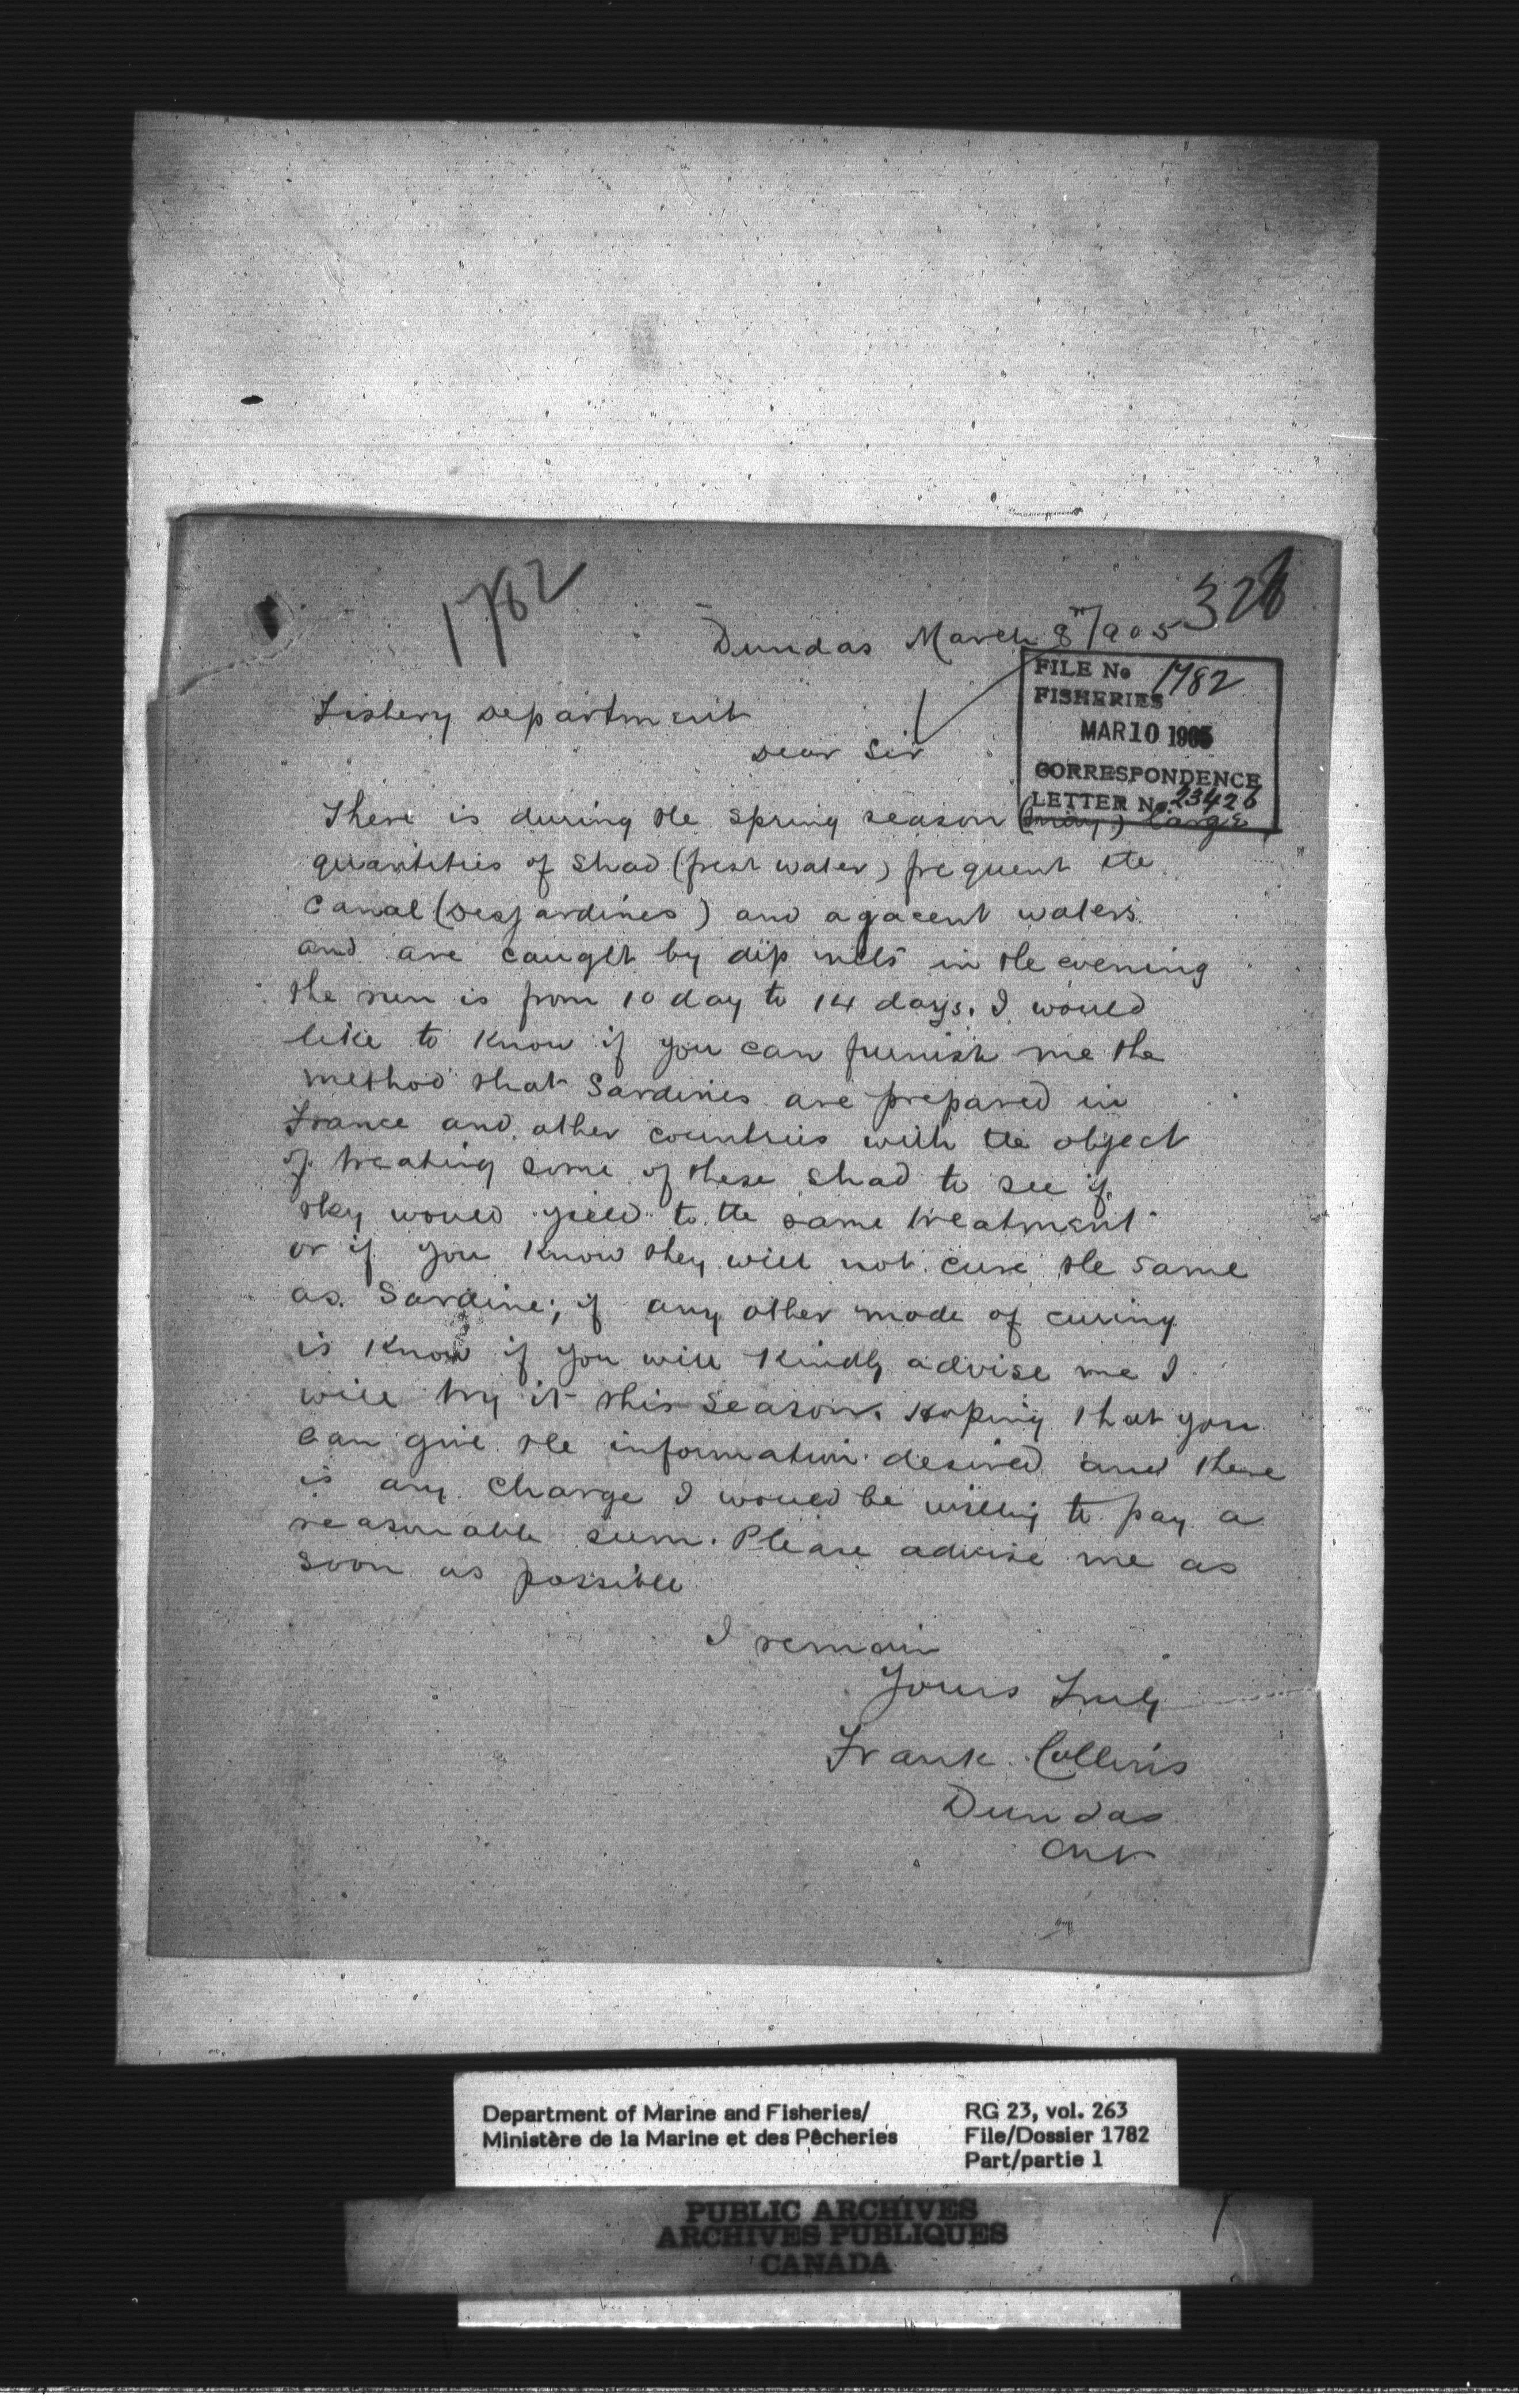 1782
326
Dundas March 8th/905
FILE No 1782
FISHERIES
MAR 10 1905
CORRESPONDENCE
LETTER No 23426
Fishery Department
Dear Sir
There is during the spring season (May) large
quantities of Shad (fresh water) frequent the
Canal (Desjardines) and agacent waters
and are caught by dip nets in the evening
the run is from 10 day to 14 days. I would
like to know if you can furnish me the
method that Sardines are prepared in
France and other countries with the object
of treating some of these shad to see if
they would yield to the same treatment
or if you know they will not cure the same
as Sardine; if any other mode of curing
is know if you will kindly advise me I
will try it this season. Hoping that you
can give the information desired and there
is any charge I would be willing to pay a
reasonable sum. Please advise me as
soon as possible
I remain
Yours Truly
Frank Collins
Dundas
Ont
Department of Marine and Fisheries/
Ministère de la Marine et des Pêcheries
RG 23, vol. 263
File/Dossier 1782
Part/partie 1
PUBLIC ARCHIVES
ARCHIVES PUBLIQUES
CANADA